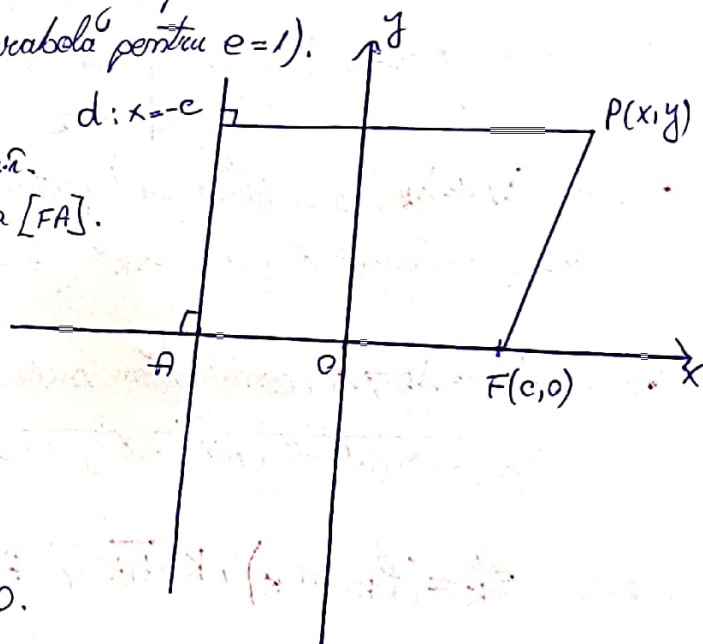 parabolă pentru e=1).
y
d: x=-c
P(x,y)
[FA].
A
O
F(c,0)
x
0.